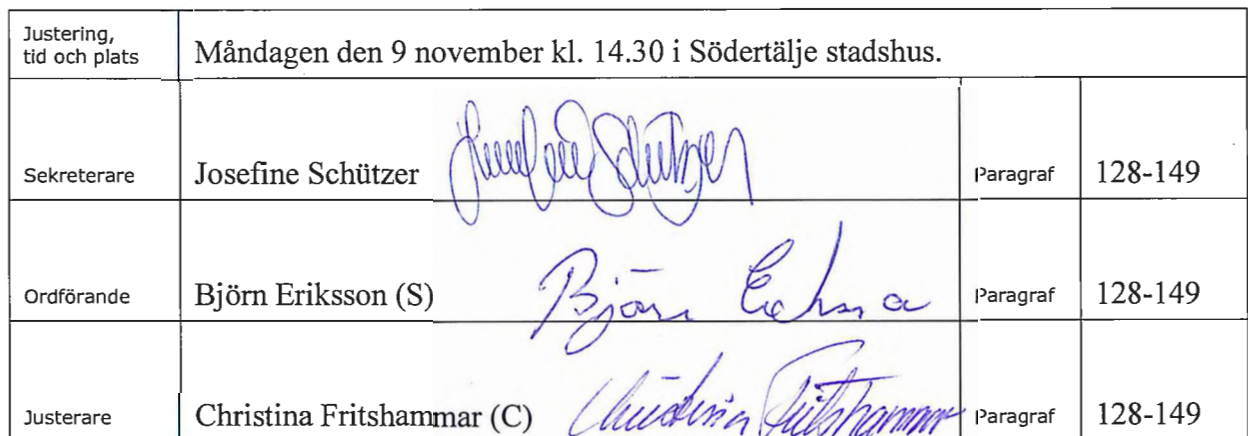 Justering,
tid och plats
Måndagen den 9 november kl. 14.30 i Södertälje stadshus.
Sekreterare Josefine Schützer Josefine Schützer Paragraf 128-149
Ordförande Björn Eriksson (S) Björn Eriksson Paragraf 128-149
Justerare Christina Fritshammar (C) Christina Fritshammar Paragraf 128-149